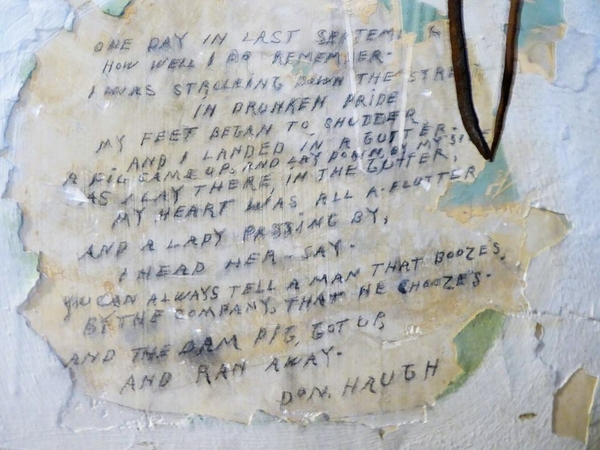 ONE DAY IN LAST SEPTEM
HOW WELL I DO REMEMBER.
I WAS STROLEING DOWN THE STRE
IN DRUNKEN PRIDE
MY FEET BEGAN TO SHUDEER
AND I LANDED IN A GUTTER.
A PIG CAME UP, AND LAY DOWN BY MY SI
AS I LAY THERE, IN THE GUTTER,
MY HEART WAS ALL A-FLUTTER
AND A LADY PASSING BY,
I HEAD HER-SAY.
YOU CAN ALWAYS TELL A MAN THAT BOOZES,
BY THE COMPANY, THAT HE CHOOZES.
AND THE DAM PIG, GOT UP,
AND RAN AWAY.
DON. HAUGH